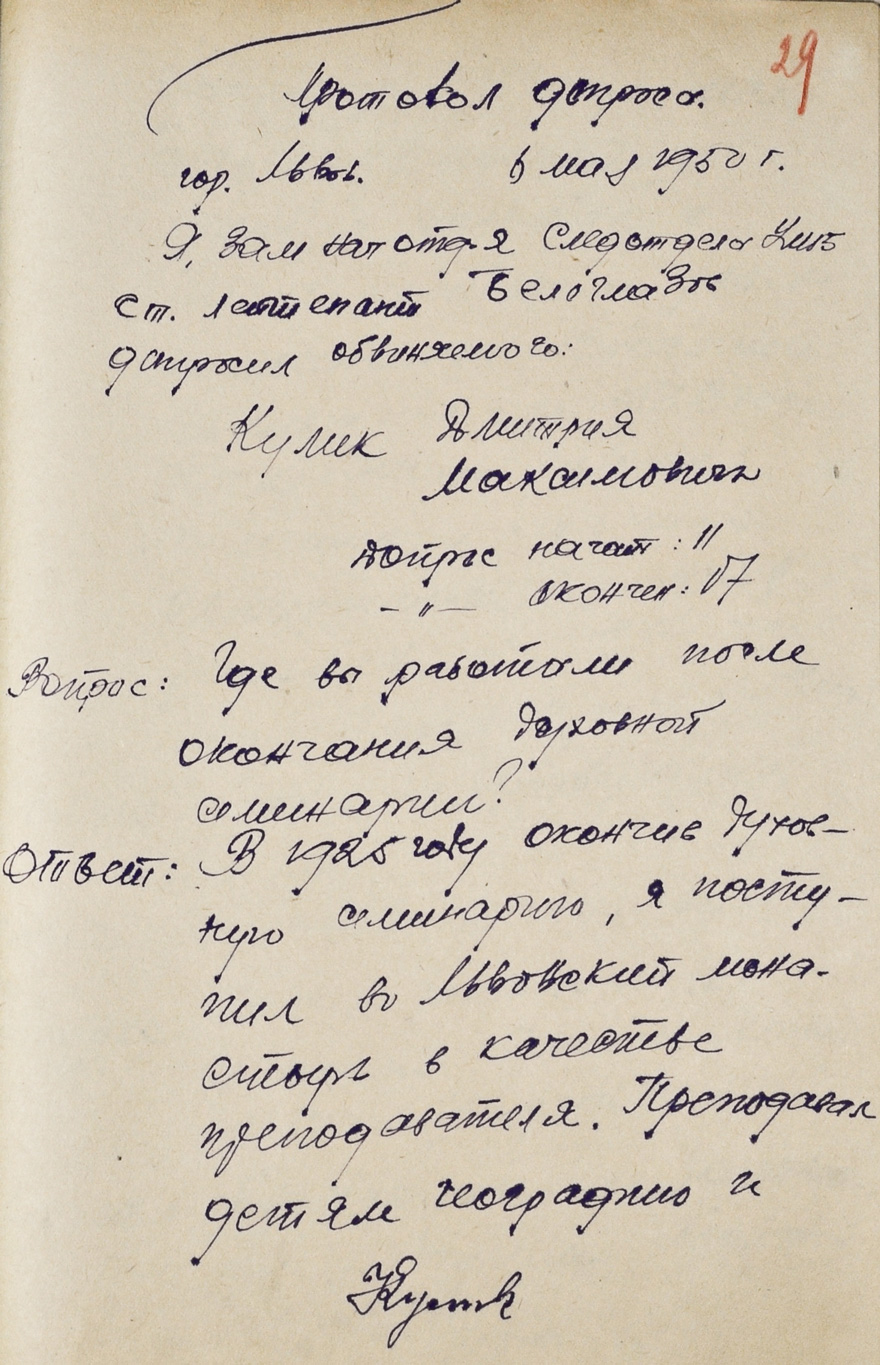 29
Протокол допроса.
гор. Львов. 6 мая 1950 г.
Я, Зам нач отд-я Следотдела
ст. лейтенант Белоглазов
допросил обвиняемого:
Кулик Дмитрия
Максимовича
Допрос начат: 11
—"— окончен: 17
Вопрос: Где вы работали после
окончания духовной
семинарии?
Ответ: В 1925 году окончив духов-
ную семинарию, я посту-
пил во Львовский мона-
стырь в качестве
преподавателя. Преподавал
детям географию и
Кулик